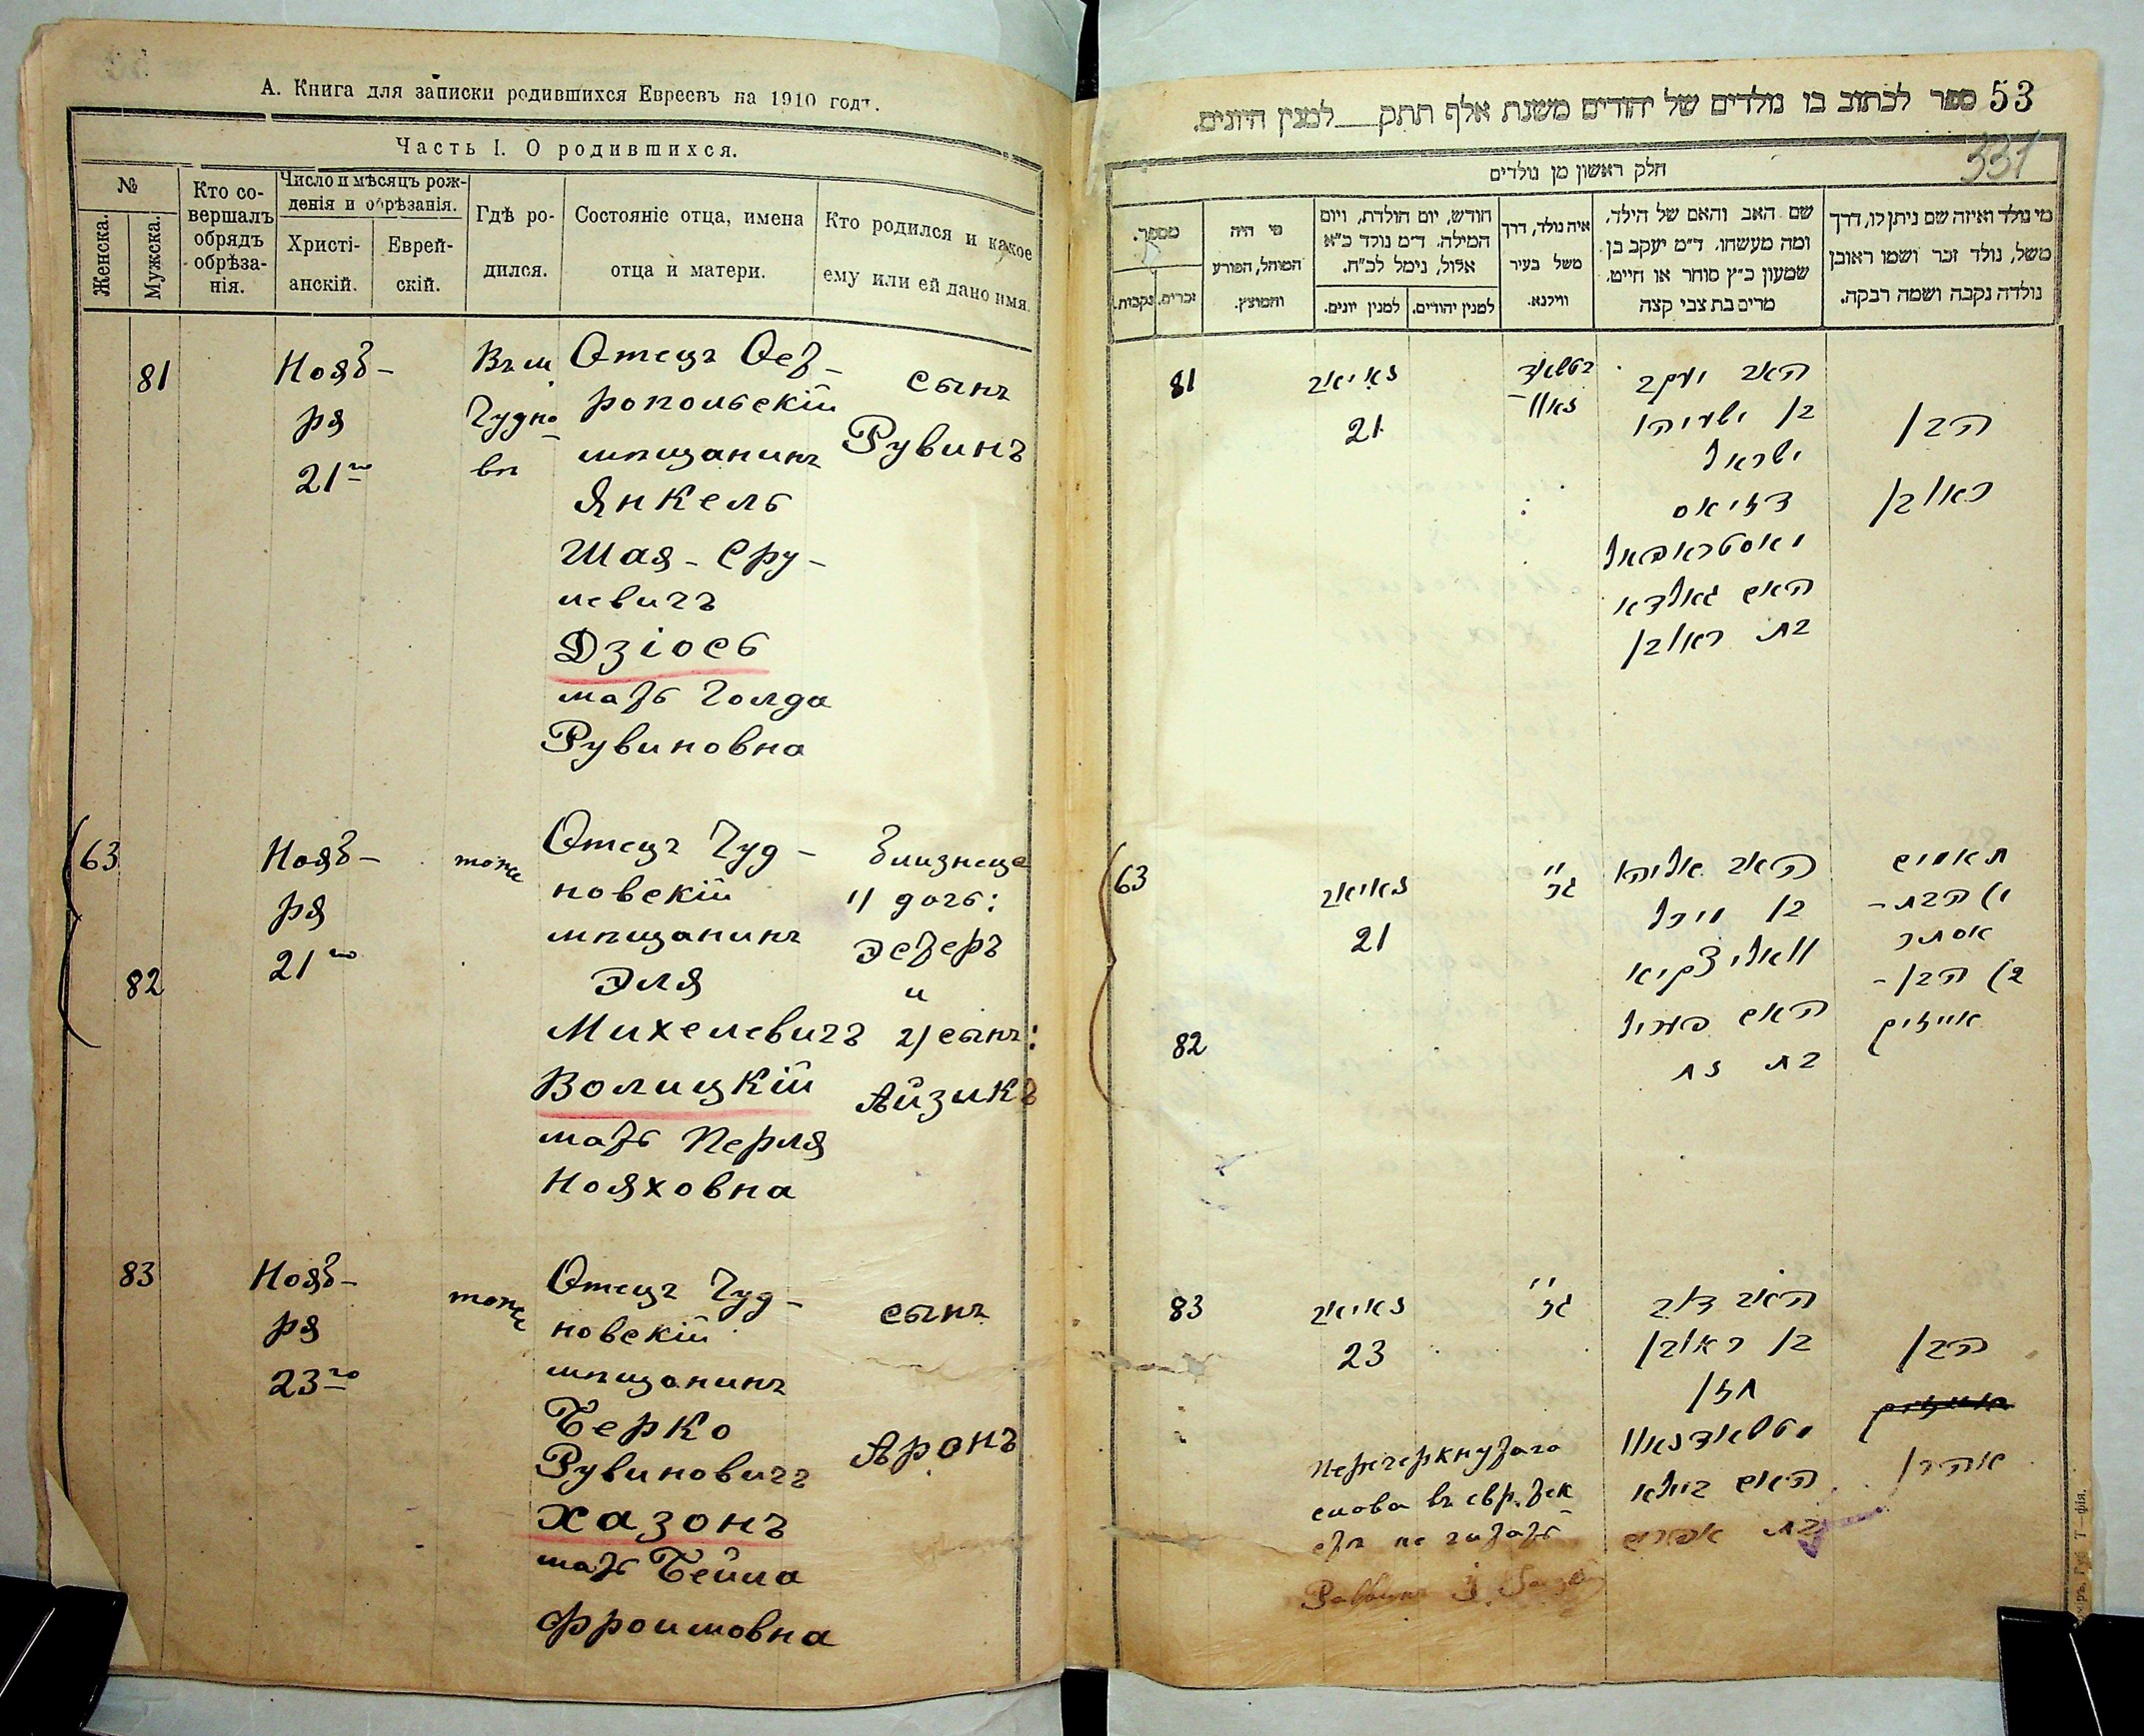 А. Книга для записки родившихся Евреевъ на 1910 годъ.
Часть I. О родившихся.
№
Женска.
Мужска.
Кто со-
вершалъ
обрядъ
обрѣза-
нія.
Число и мѣсяцъ рож-
денія и обрѣзанія.
Христі-
анскій.
Еврей-
скій.
Гдѣ ро-
дился.
Состояніе отца, имена
отца и матери.
Кто родился и какое
ему или ей дано имя.
81
Нояб-
ря
21го
Въ м.
Чудно-
вѣ
Отецъ Ост-
ропольскій
мѣщанинъ
Янкель
Шая-Сру-
левичъ
Дзіосъ
мать Голда
Рувиновна
сынъ
Рувинъ
63
82
Нояб-
ря
21го
тоже
Отецъ Чуд-
новскій
мѣщанинъ
Эля
Михелевичъ
Волицкій
мать Перля
Нояховна
близнеца
1) дочь:
Эстеръ
и
2) сынъ:
Айзикъ
83
Нояб-
ря
23го
тоже
Отецъ Чуд-
новскій
мѣщанинъ
Берко
Рувиновичъ
Хазонъ
мать Бейла
Фроимовна
сынъ
Аронъ
53 ספר לכתוב בו נולדים של יהודים משנת אלף תתק למנין היונים.
331
חלק ראשון מן נולדים
מספר.
זכרים.
נקבות.
מי היה
המוהל, הפורע
והמוצץ.
חודש, יום הולדת, ויום
המילה. ד״מ נולד כ״א
אלול, נימל לכ״ח.
למנין יונים.
למנין יהודים.
איה נולד, דרך
משל בעיר
ווילנא.
שם האב והאם של הילד,
ומה מעשהו. ד״מ יעקב בן
שמעון כ״ץ סוחר או חייט.
מרים בת צבי קצה
מי נולד ואיזה שם ניתן לו, דרך
משל, נולד זכר ושמו ראובן
נולדה נקבה ושמה רבקה.
81
נאיאב
21
האב יעקב
בן ישעיהו
ישראל
דזיאס
האם גאלדא
בת ראובן
הבן
ראובן
63
82
נאיאב
21
האב אליהו
בן מיכל
וואליצקיא
האם פערל
בת נח
תאומים
1) הבת-
אסתר
2) הבן-
אייזיק
83
נאיאב
23
האב דוב
בן ראובן
חזן
האם ביילא
בת אפרים
הבן
אהרן
Перечеркнутаго
слова въ евр. тек
стѣ не читать
Раввинъ